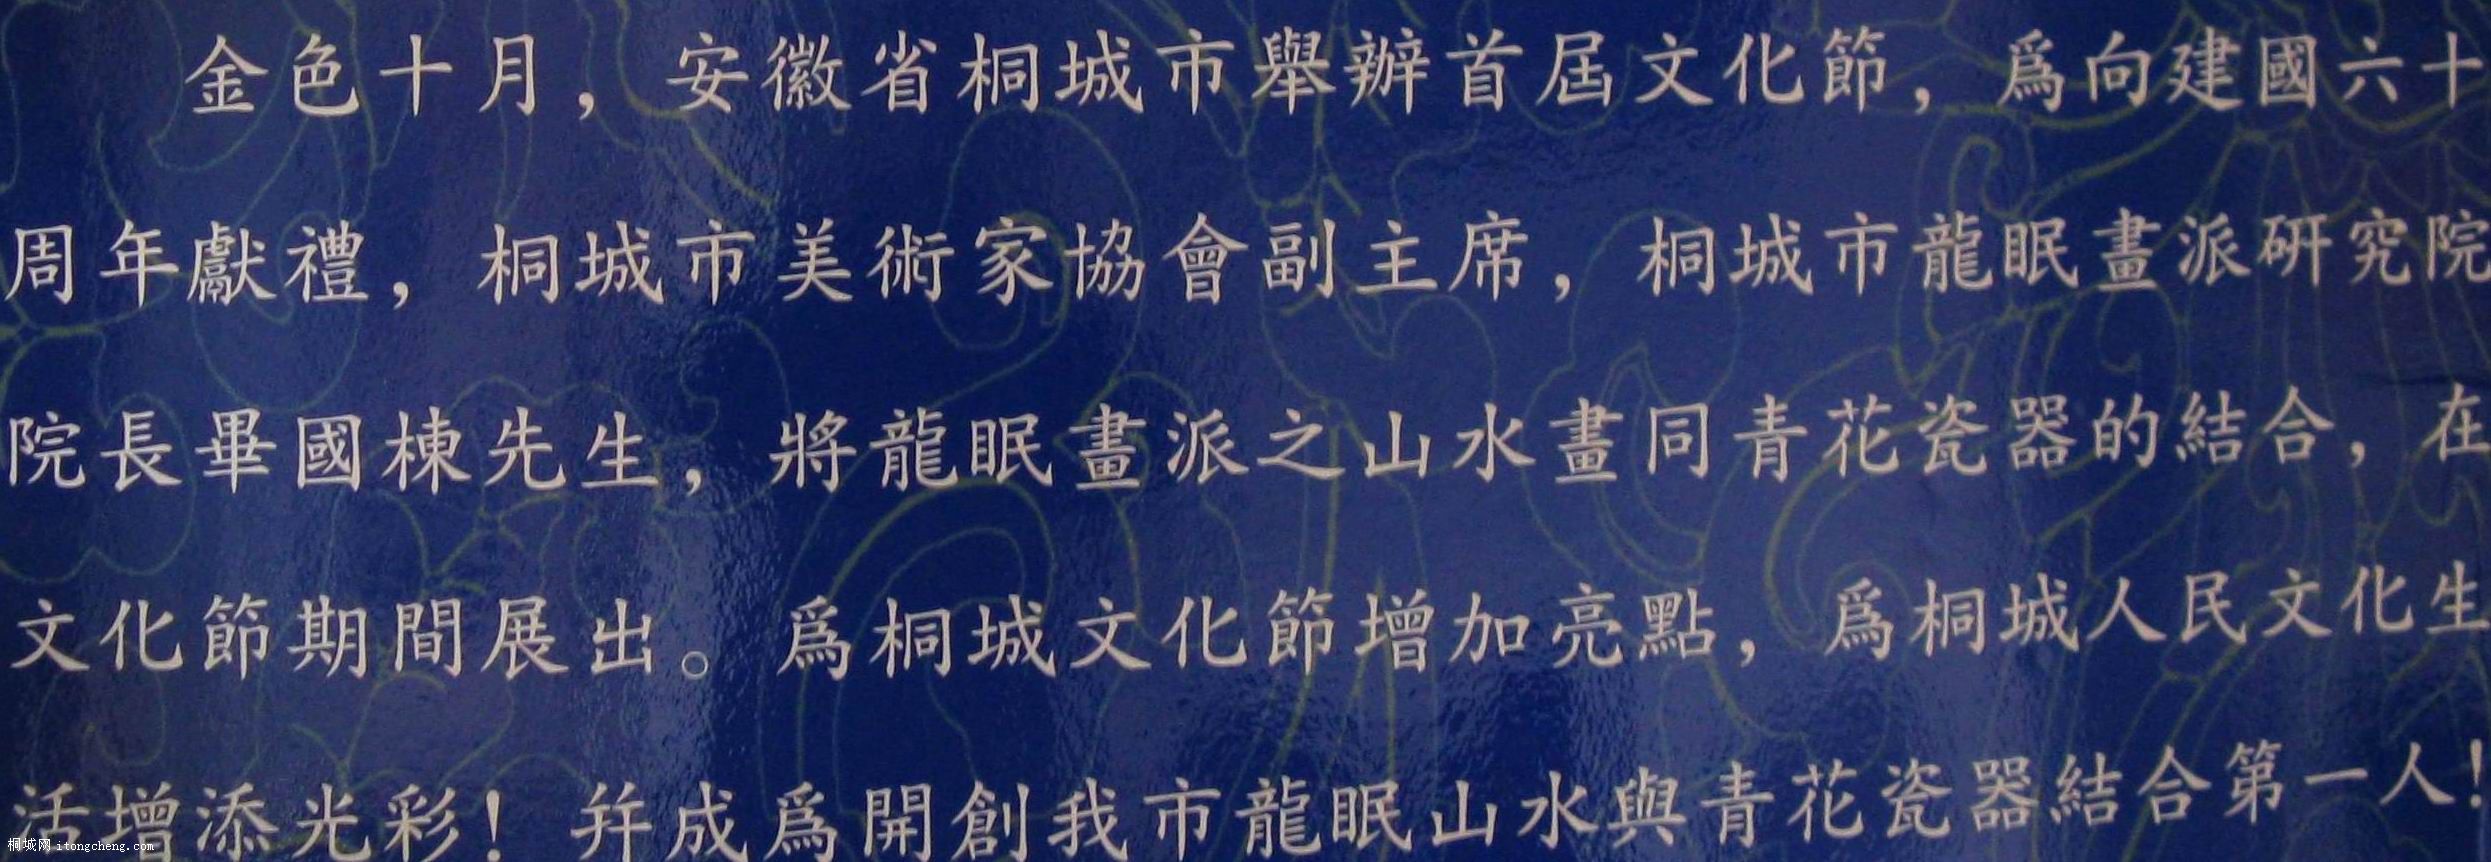 金色十月，安徽省桐城市舉辦首屆文化節，爲向建國六十
周年獻禮，桐城市美術家協會副主席，桐城市龍眠畫派研究院
院長畢國棟先生，將龍眠畫派之山水畫同青花瓷器的結合，在
文化節期間展出。爲桐城文化節增加亮點，爲桐城人民文化生
活增添光彩！并成爲開創我市龍眠山水與青花瓷器結合第一人！
桐城网 itongcheng.com